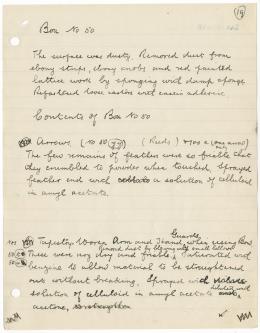 Box No 50
The surface was dusty. Removed dust from
ebony strips, ebony knobs and red painted
lattice work by sponging with damp sponge.
Refastened loose
with casein adhesive.
Contents of Box No 50
Arrows (No 50
) (Reeds)
The few remains of feather were so friable that
they crumbled to powder when touched. Sprayed
feather end with
a solution of celluloid
in amyl acetate.
Guards,
Tapestry Woven Arm and
when using Bow
Removed dust by blowing with small bellows
These were very dry and friable. Saturated with
benzine to allow material to be straightened
out without breaking. Sprayed with
solution of celluloid in amyl acetate
acetone,